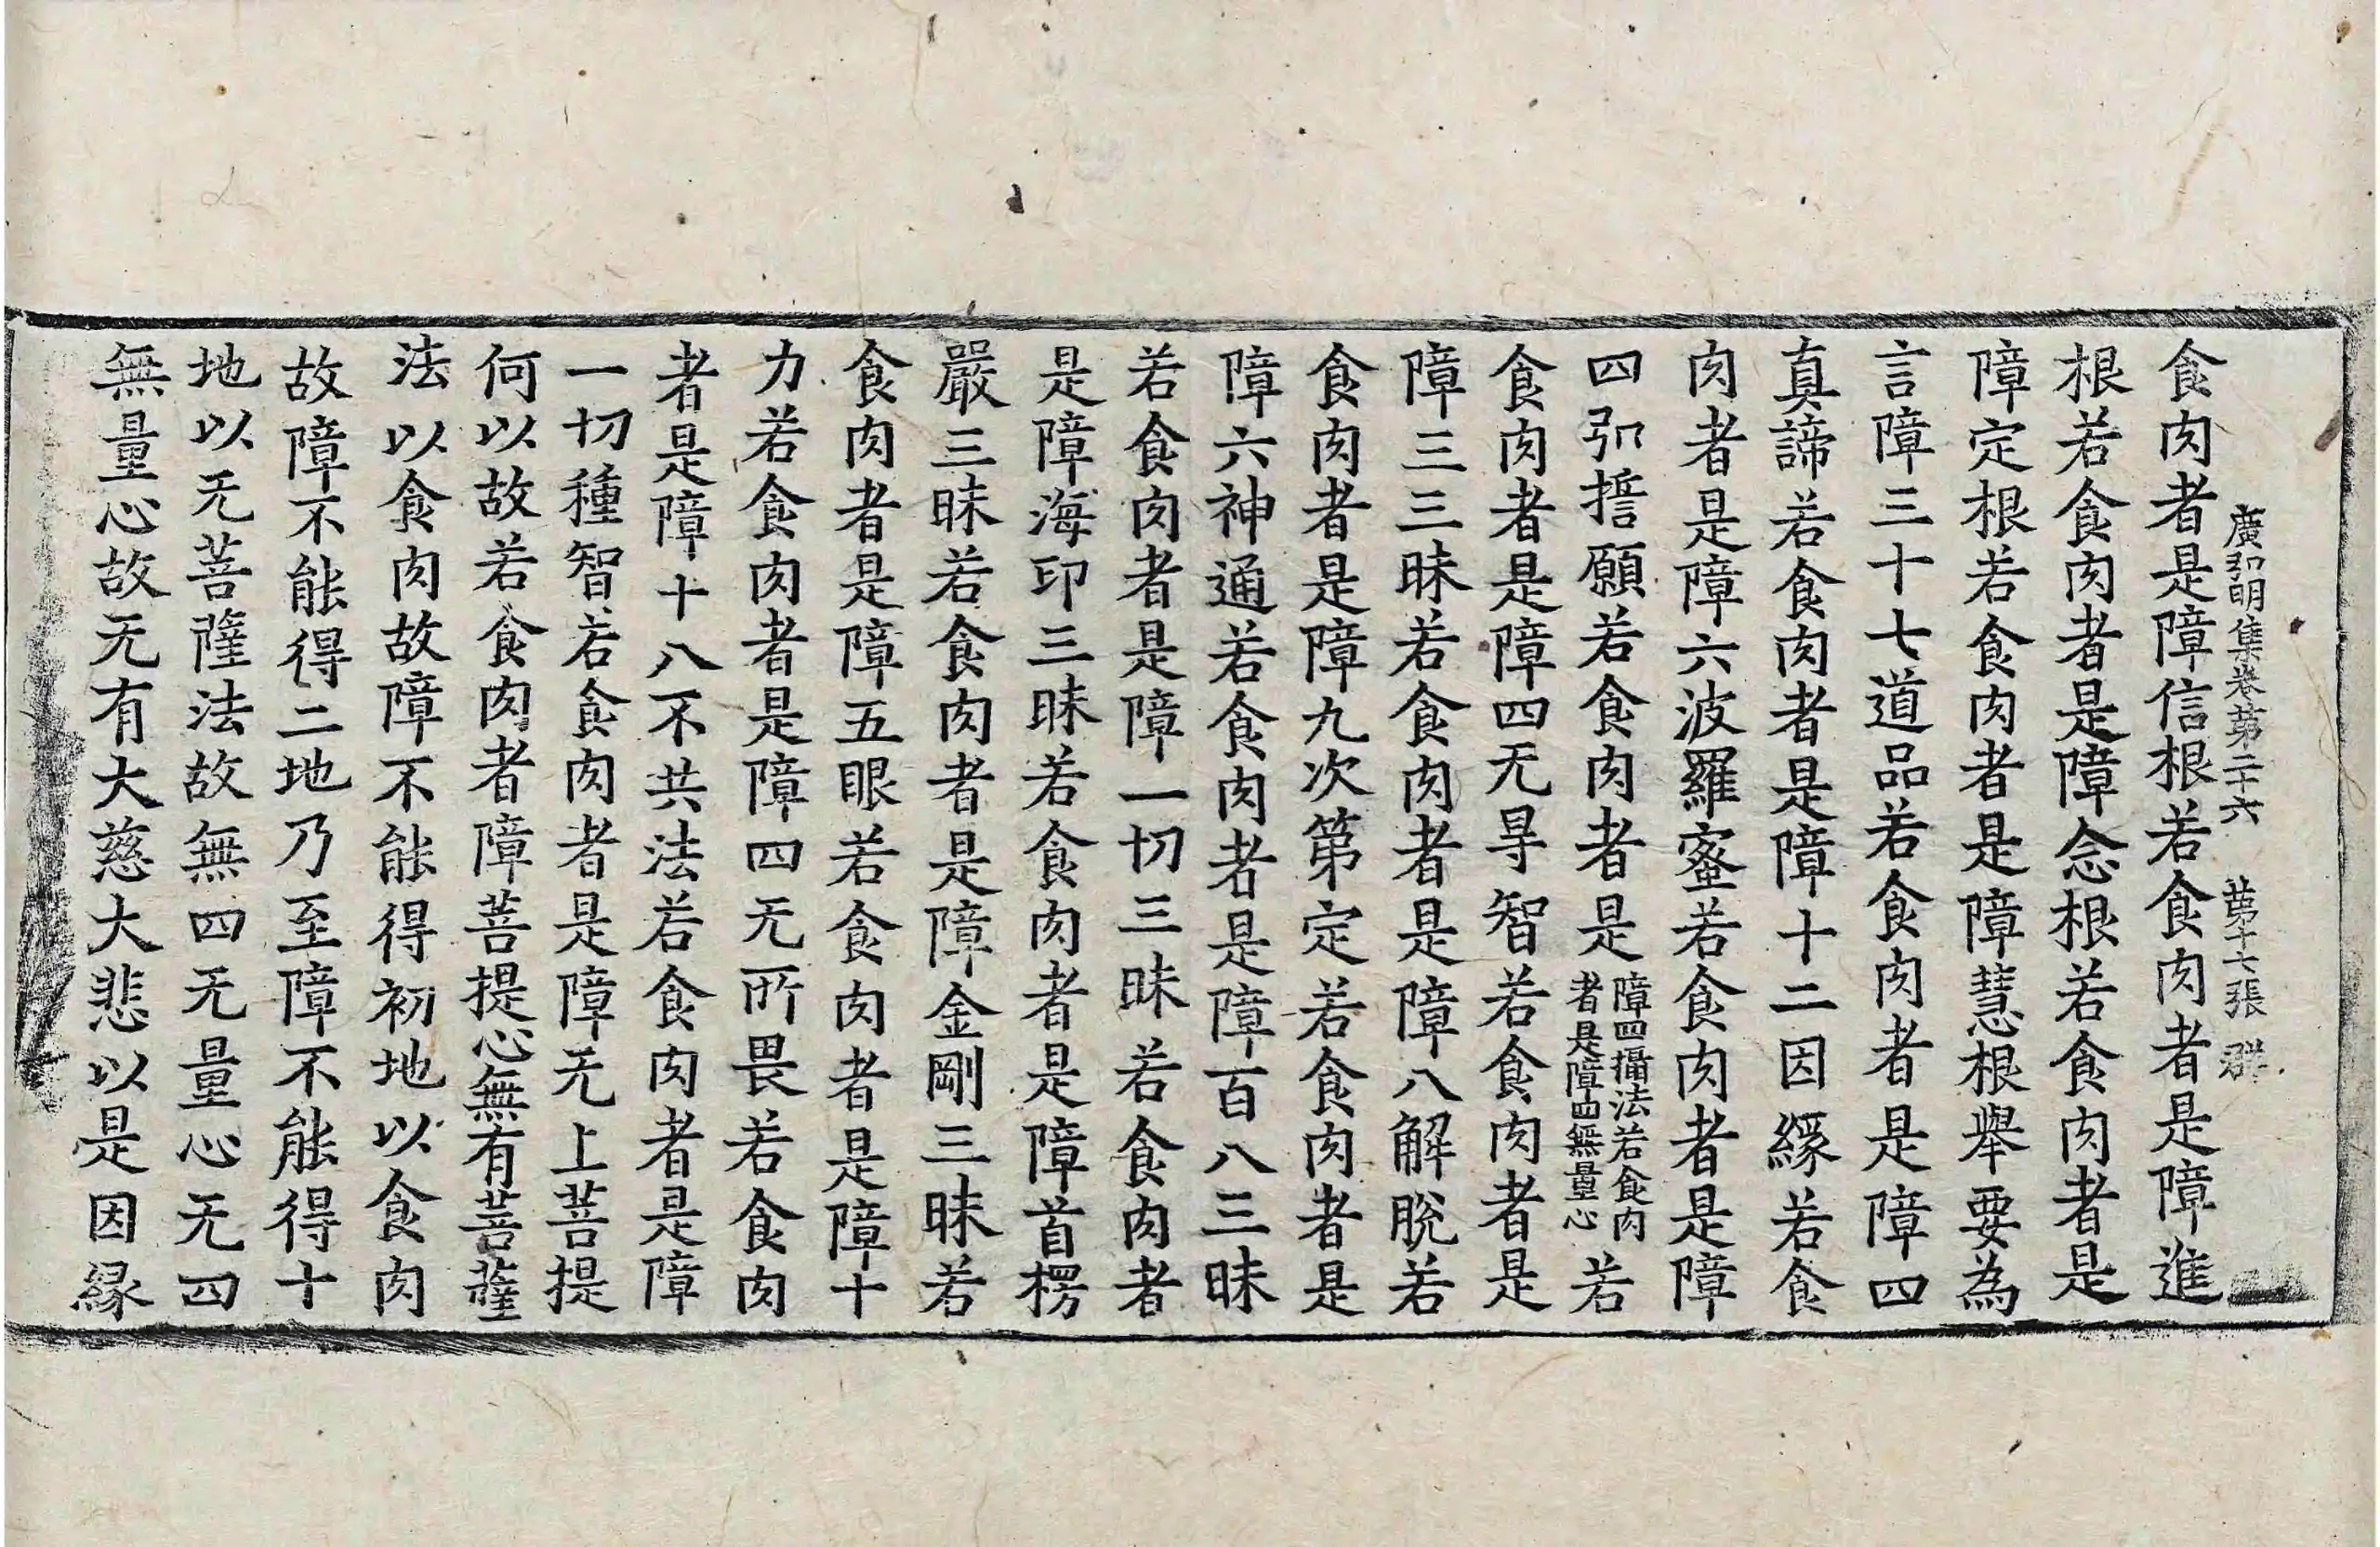 廣弘明集卷第二十六 第十七張 群
食肉者是障信根若食肉者是障進
根若食肉者是障念根若食肉者是
障定根若食肉者是障慧根舉要為
言障三十七道品若食肉者是障四
真諦若食肉者是障十二因緣若食
肉者是障六波羅蜜若食肉者是障
四弘誓願若食肉者是障四攝法若食肉者是障四無量心若
食肉者是障四无㝵智若食肉者是
障三三昧若食肉者是障八解脫若
食肉者是障九次第定若食肉者是
障六神通若食肉者是障百八三昧
若食肉者是障一切三昧若食肉者
是障海印三昧若食肉者是障首楞
嚴三昧若食肉者是障金剛三昧若
食肉者是障五眼若食肉者是障十
力若食肉者是障四无所畏若食肉
者是障十八不共法若食肉者是障
一切種智若食肉者是障无上菩提
何以故若食肉者障菩提心無有菩薩
法以食肉故障不能得初地以食肉
故障不能得二地乃至障不能得十
地以无菩薩法故無四无量心无四
無量心故无有大慈大悲以是因緣